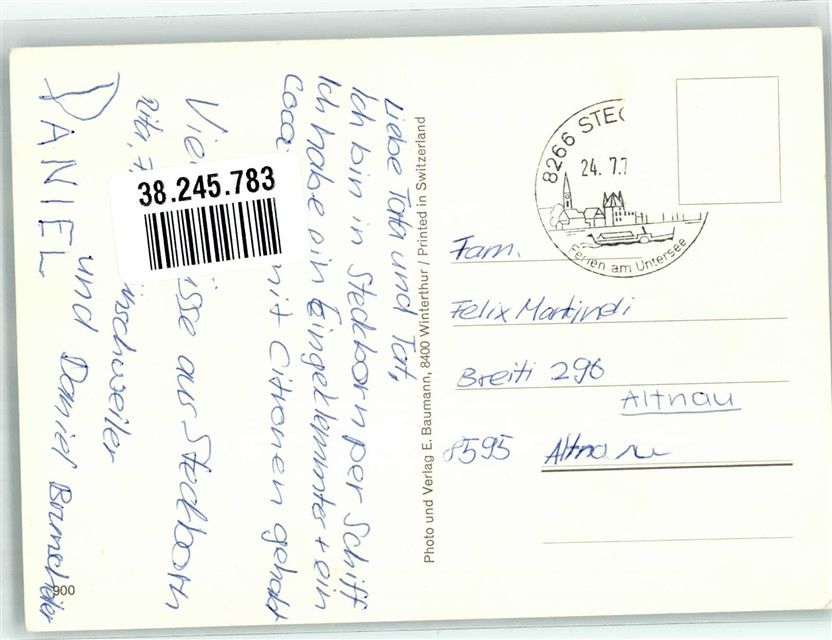 Liebe Tata und Tat,
Ich bin in Steckborn per Schiff
Ich habe ein Eingeklemmtes + ein
Coca mit Citronen gehabt
aus Steckborn
und Daniel
DANIEL
38.245.783
Photo und Verlag E. Baumann, 8400 Winterthur / Printed in Switzerland
8266 STEC
24. 7.7
Ferien am Untersee
Fam.
Felix
Breiti 296
Altnau
8595 Altnau
900